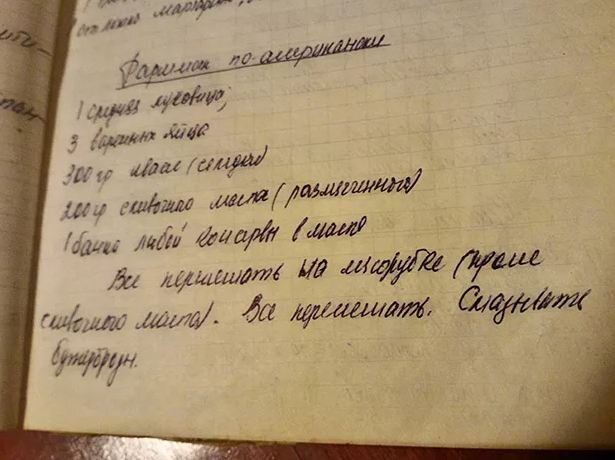 Фаршмак по-американски
1 средняя луковица;
3 вареных яйца
300 гр (селедки)
200 гр сливочного масла (размягченного)
1 банка любой консервы в масле
Все перемешать на мясорубке (кроме
сливочного масла). Все перемешать. Смазывать
бутерброды.